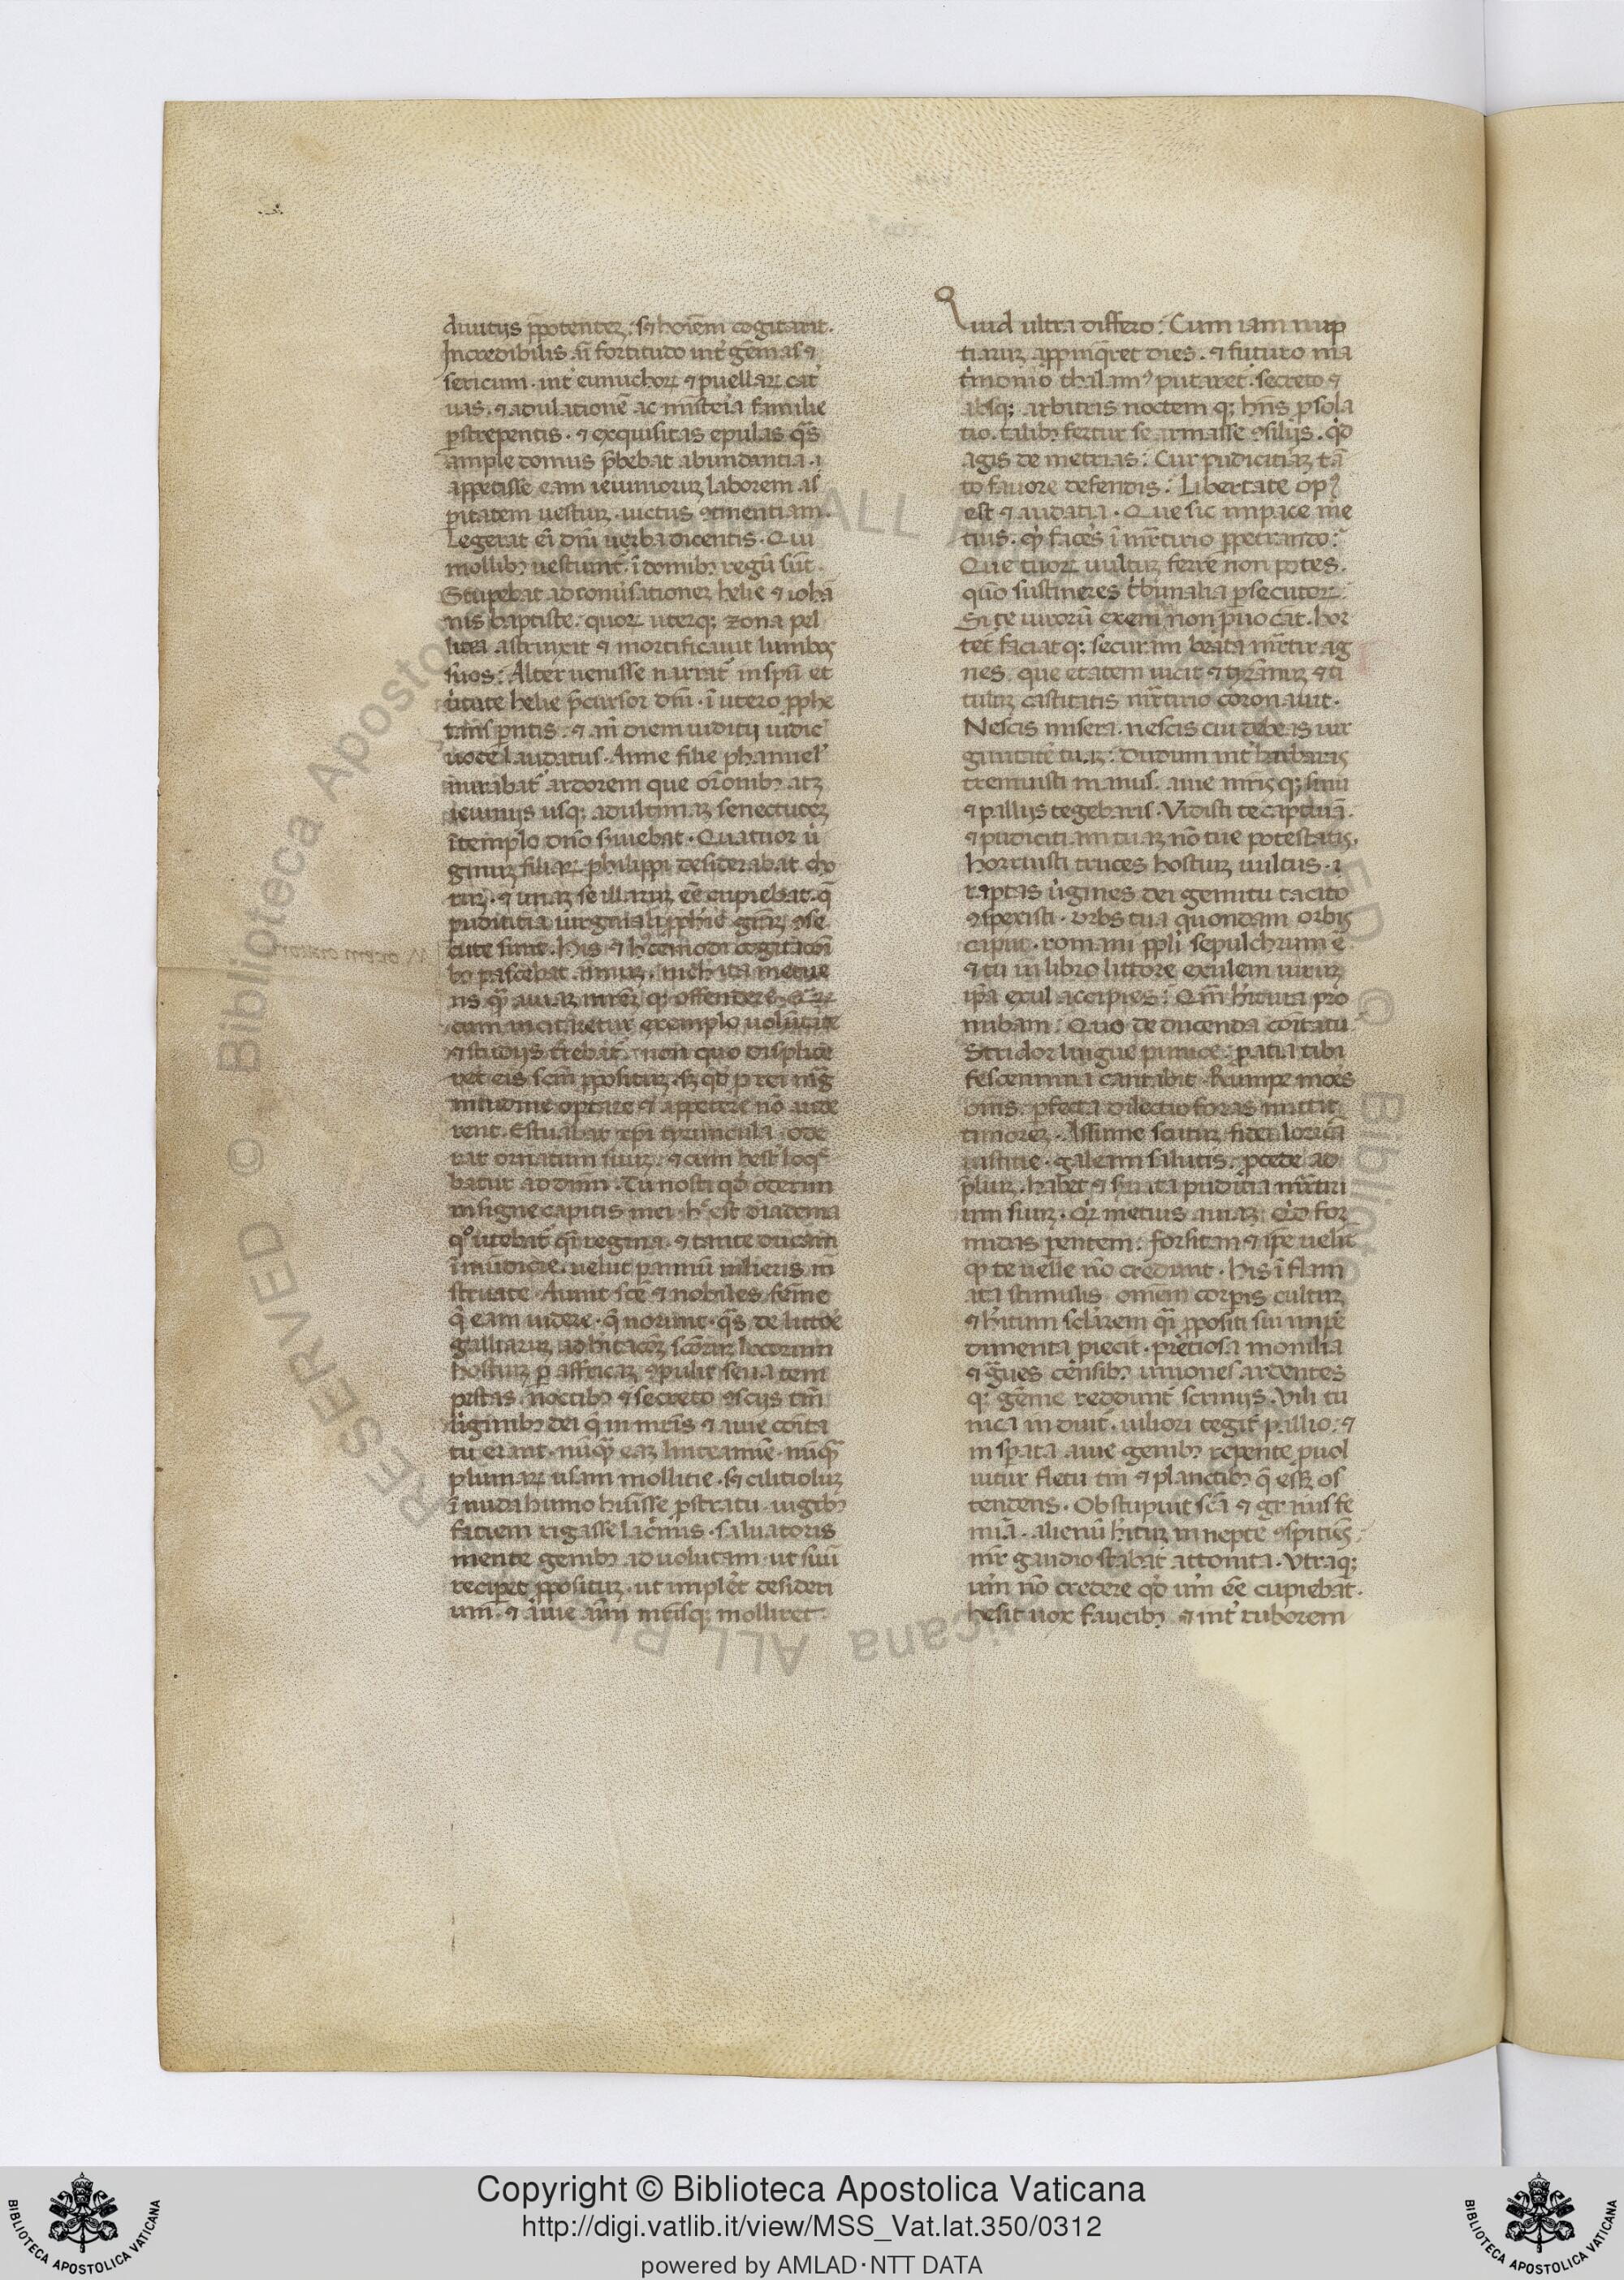 diuitijs p̄potentez : sꝫ hoīem cogitarit .
Incredibilis aī fortitudo int̉ gēmas ⁊
sericum . int̉ eunuchoꝝ ⁊ puellaꝝ cat̉
uas . ⁊ adulationē ac mīsteria familie
ꝑstrepentis . ⁊ exquisitas epulas q̄s
ample domus p̄bebat abundantia . ⁊
appetisse eam ieiunioruꝫ laborem as
ꝑitatem uestiuꝫ . uictus ꝯtinentiam .
Legerat eī dn̄i uerba dicentis . Qui
mollibꝫ uestiunt̉ . ī domibꝫ regū sūt .
Stupebat ad conu̓sationeꝫ helie ⁊ iohā
nis baptiste : quoꝝ uterqꝫ zona pel
litia astrinxit ⁊ mortificauit lumbos
suos : Alter uenisse narrat̉ in spū et
uirtute helie p̄cursor dn̄i . ī utero ꝓphe
tans parentis . ⁊ an̄ diem iuditij iudic̉
uoce laudatus . Anne filie phanuel̉
mirabat̉ ardorem que orōnibꝫ atqꝫ
ieiunijs usqꝫ ad ultimaꝫ senectuteꝫ
ī templo dn̄o s̓uiebat . Quatuor ū
ginuꝫ filiaꝝ philippi desiderabat cho
ruꝫ . ⁊ unaꝫ se illaruꝫ eē cupiebat . q̄
pudititia uirginali ꝓphīe gr̄aꝫ ꝯse
cute sunt . His ⁊ hꝰcemodi cogitatōi
bꝫ pascebat aīmuꝫ . nichil ita metue
ns q̄ꝫ auiaꝫ mr̄eꝫ qꝫ offendere . Quaꝝ
cum incitaretur exemplo uolūtate
⁊ studijs t̓rebat̉ . non quo displice
ret eis scm̄ ꝓpositum . sꝫ qd̓ p rei mag
nitudine optare ⁊ appetere nō aude
rent . Estuabat xp̄i tiruncula . ode
rat ornatum suuꝫ . ⁊ cum hest̓ loq̄
batur ad dn̄m . Tu nosti qd̓ oderim
insigne capitis mei . hͨ est diadema
q° utebat̉ q̄i regina . ⁊ tante ducam
īmūditie . uelut pannū mlieris m̄
struate . Aiunt scē ⁊ nobiles femīe
q̄ eam uidere . q̄ norunt . q̄s de littoē
galliaruꝫ ad hītacōꝫ scōruꝫ locorum
hostiuꝫ ꝑ affricaꝫ ꝯpulit seua tem
pestas . noctibꝫ ⁊ secreto ꝯscijs tm̄
ūginibꝫ dei q̄ in mr̄is ⁊ auie comita
tu erant . nūq̄ꝫ eaꝫ linteamīe . nūq̄ꝫ
plumaꝝ usam mollitie . sꝫ cilitioluꝫ
ī nuda humo hūisse ꝑ stratu . iugibꝫ
faciem rigasse lac̓mis . saluatoris
mente genibꝫ aduolutam . ut suū
reciperet ꝓpositum . ut implēt desideri
um . ⁊ auie aīm mr̄isqꝫ molliret .
Quid ultra differo : Cum iam nup
tiaruꝫ appinq̄ret dies . ⁊ futuro ma
t̓monio thalamꝰ putaret̉ . secreto ⁊
absqꝫ arbitris noctem qꝫ hn̄s p sola
tio . talibꝫ fertur se armasse ꝯsilijs . qd̓
agis demetrias : Cur pudicitiaꝫ tā
to fauore defendis : Libertate opꝰ
est ⁊ audatia . Que sic in pace me
tuis . qd̓ faceres ī mr̄tirio ꝑpetrando :
Que tuoꝝ uultuꝫ ferre non potes .
quō sustineres t̓bunalia ꝑsecutoꝝ :
Si te uirorū exem̄ non ꝓuocat . hor
tet̉ faciatqꝫ securam beata mr̄tir ag
nes . que etatem uicit ⁊ tyrannuꝫ ⁊ ti
tuluꝫ castitatis mr̄tirio coronauit .
Nescis misera . nescis cui debeas uir
ginitatē tuaꝫ : dudum int̉ barbaras
tremuisti manus . auie mr̄isqꝫ sinu
⁊ pallijs tegebaris . Vidisti te captiuā .
⁊ pudicitiam tuaꝫ nō tue potestatis .
horruisti truces hostiuꝫ uultus . ⁊
raptas ūgines dei gemitu tacito
ꝯspexisti . vrbs tua quondam orbis
caput . romani ppli sepulchrum ē
⁊ tu in libro littore exulem uiruꝫ
ip̄a exul accipies : Qm̄ hitura pro
nubam : Quo deducenda comitatu
Stridor lingue punice : ꝓ atia tibi
fescennina cantabit . Rumpe mores
om̄s . ꝑfecta dilectio foras mittit
timoreꝫ . Assume scutuꝫ fidei . loricā
iustitie . galeam salutis . procede ad
p̄liuꝫ . habet ⁊ s̓uata pudicitia mr̄tiri
um suuꝫ . Quid metuis auiaꝫ : Qd̓ for
midas parentem : forsitan ⁊ ip̄e uelit̉
qd̓ te uelle nō credunt . His ī flam
ata stimulis . omnem corpis cultuꝫ
⁊ hitum sclarem q̄i ꝓpositi sui impe
dimenta proiecit . pretiosa monilia
⁊ graues censibꝫ uniones ardentes
qꝫ gēme redduntꝉ scrinijs . Vili tu
nica induit̉ . uiliori tegit̉ pallio : ⁊
insperata auie genibꝫ repente ꝓuol
uitur fletu tm̄ ⁊ planctibꝫ q̄ esꝫ os
tendens . Obstupuit scā ⁊ grauis fe
mīa . alienū hituꝫ in nepte ꝯspitiens .
mr̄ gaudio stabat attonita . Vtraqꝫ
uerum nō credere qd̓ uerum eē cupiebāt .
hesit uox faucibꝫ ⁊ int̉ ruborem
Copyright © Biblioteca Apostolica Vaticana
http://digi.vatlib.it/view/MSS_Vat.lat.350/0312
powered by AMLAD·NTT DATA